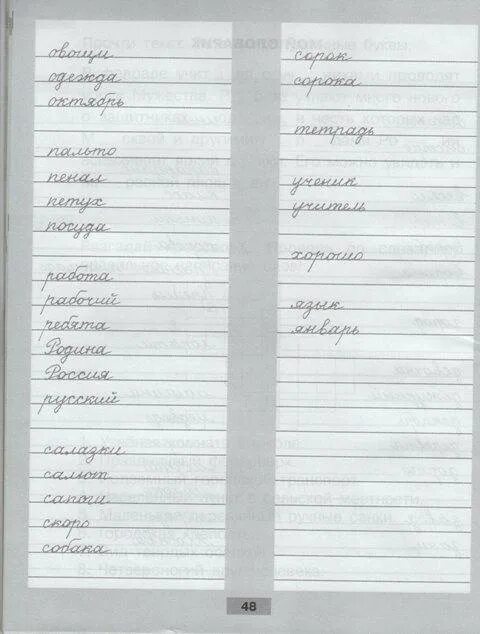 овощи
одежда
октябрь
пальто
пенал
петух
посуда
работа
рабочий
ребята
Родина
Россия
русский
салазки
салют
сапоги
скоро
собака
сорок
сорока
тетрадь
ученик
учитель
хорошо
язык
январь
48